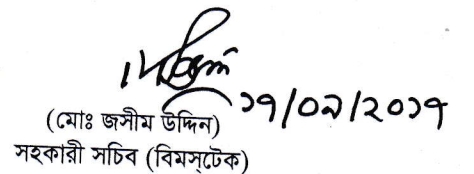 ১৭/০৯/২০১৭
(মোঃ জসীম উদ্দিন)
সহকারী সচিব (বিমস্‌টেক)